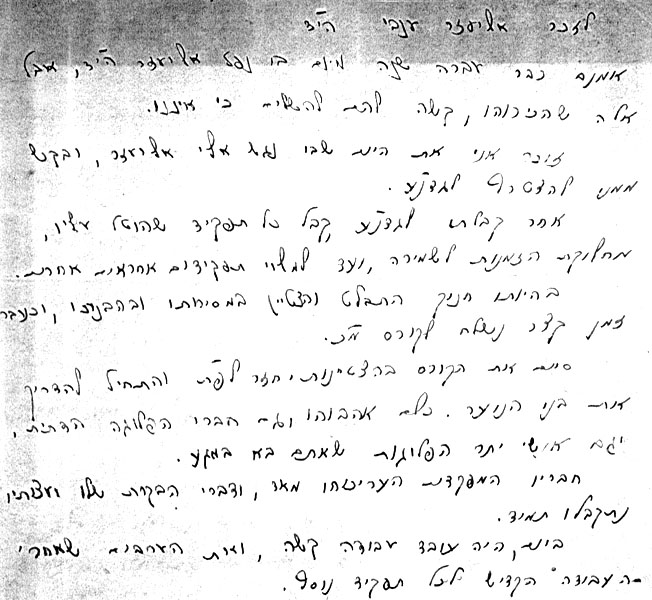 לזכר אליעזר ענבי הי"ד
אומנם כבר עברה שנה מיום בו נפל אליעזר הי"ד, אבל
אלה שהכירוהו, קשה להם להשלים כי איננו.
זוכר אני את היום שבו נגש אלי אליעזר, ובקש
ממני להצטרף לגדנ"ע.
אחר קבלתו לגדנ"ע קבל כל תפקיד שהוטל עליו,
מחלוקת הזמנות לשמירה, ועד למלוי תפקידים אחראים אחרים.
בהיותו חניך התבלט והצטיין במסירותו ובהבנתו, וכעבר
זמן קצר נשלח לקורס מ"כ.
סיים את הקורס בהצטיינות, חזר לפ"ת והתחיל להדריך
את בני הנוער. כלם אהבוהו וגם חברו הפלוגה הדתית,
וגם אנשי יתר הפלוגות שאתם בא במגע.
חבריו המפקדים העריצוהו מאד, ודברי הבקרת שלו ועצותיו
נתקבלו תמיד.
ביום, היה עובד עבודה קשה, ואת הערבים שאחרי
העבודה הקדיש לכל תפקיד נוסף.